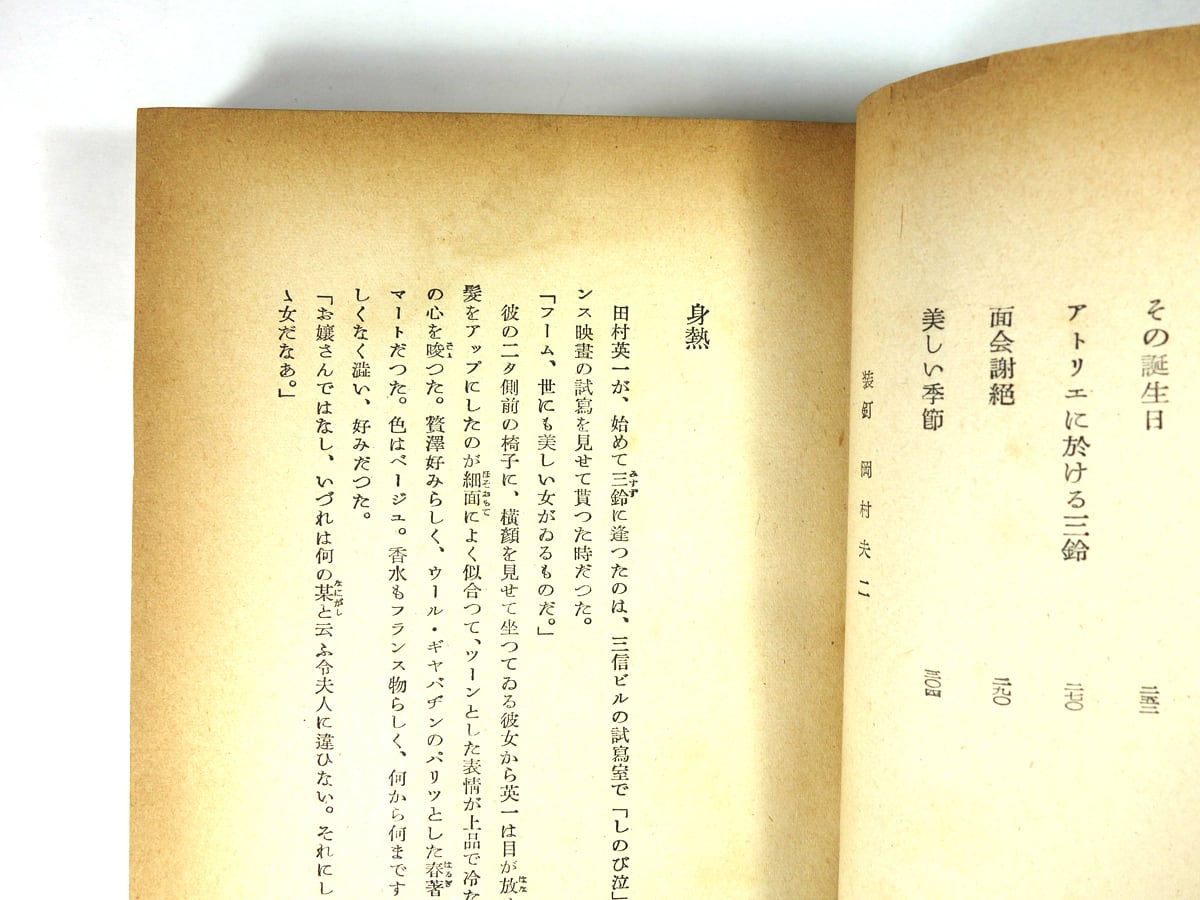 その誕生日 二五二
アトリエに於ける三鈴 二七〇
面会謝絶 二九〇
美しい季節 三〇四
装釘 岡村夫二
身熱
田村英一が、始めて三鈴に逢つたのは、三信ビルの試寫室で「しのび泣」
ンス映畫の試寫を見せて貰つた時だつた。
「フーム、世にも美しい女がゐるものだ。」
彼の二タ側前の椅子に、横顏を見せて坐つてゐる彼女から英一は目が放
髪をアップにしたのが細面によく似合つて、ツーンとした表情が上品で冷た
の心を唆つた。贅澤好みらしく、ウール・ギャバヂンのパリツとした春著
マートだつた。色はベージュ。香水もフランス物らしく、何から何まです
しくなく澁い、好みだつた。
「お嬢さんではなし、いづれは何の某と云ふ令夫人に違ひない。それにし
ゝ女だなあ。」